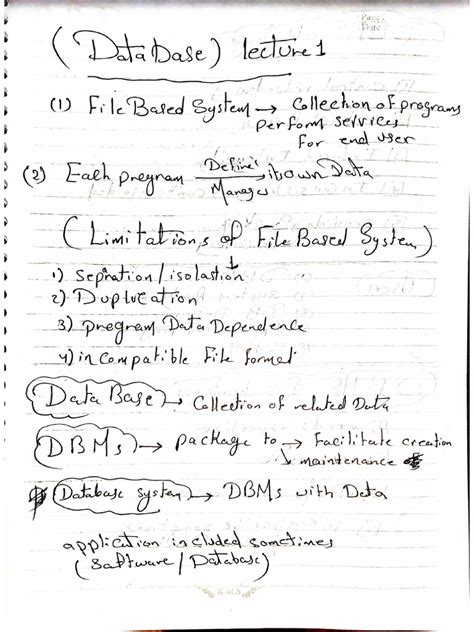 Page
Date
(Database) lecture 1
(1) File Based System → Collection of programs
perform services
for end user
(2) Each program Define → its own Data
Manages
(Limitations of File Based System)
1) Sepration / isolastion
2) Duplucation
3) program Data Dependence
4) in compatible File format
Data Base → Collection of related Data
DBMs → package to → Facilitate creation
↳ maintenance
Database system → DBMs with Data
application included sometimes
(Software / Database)
K.M.S